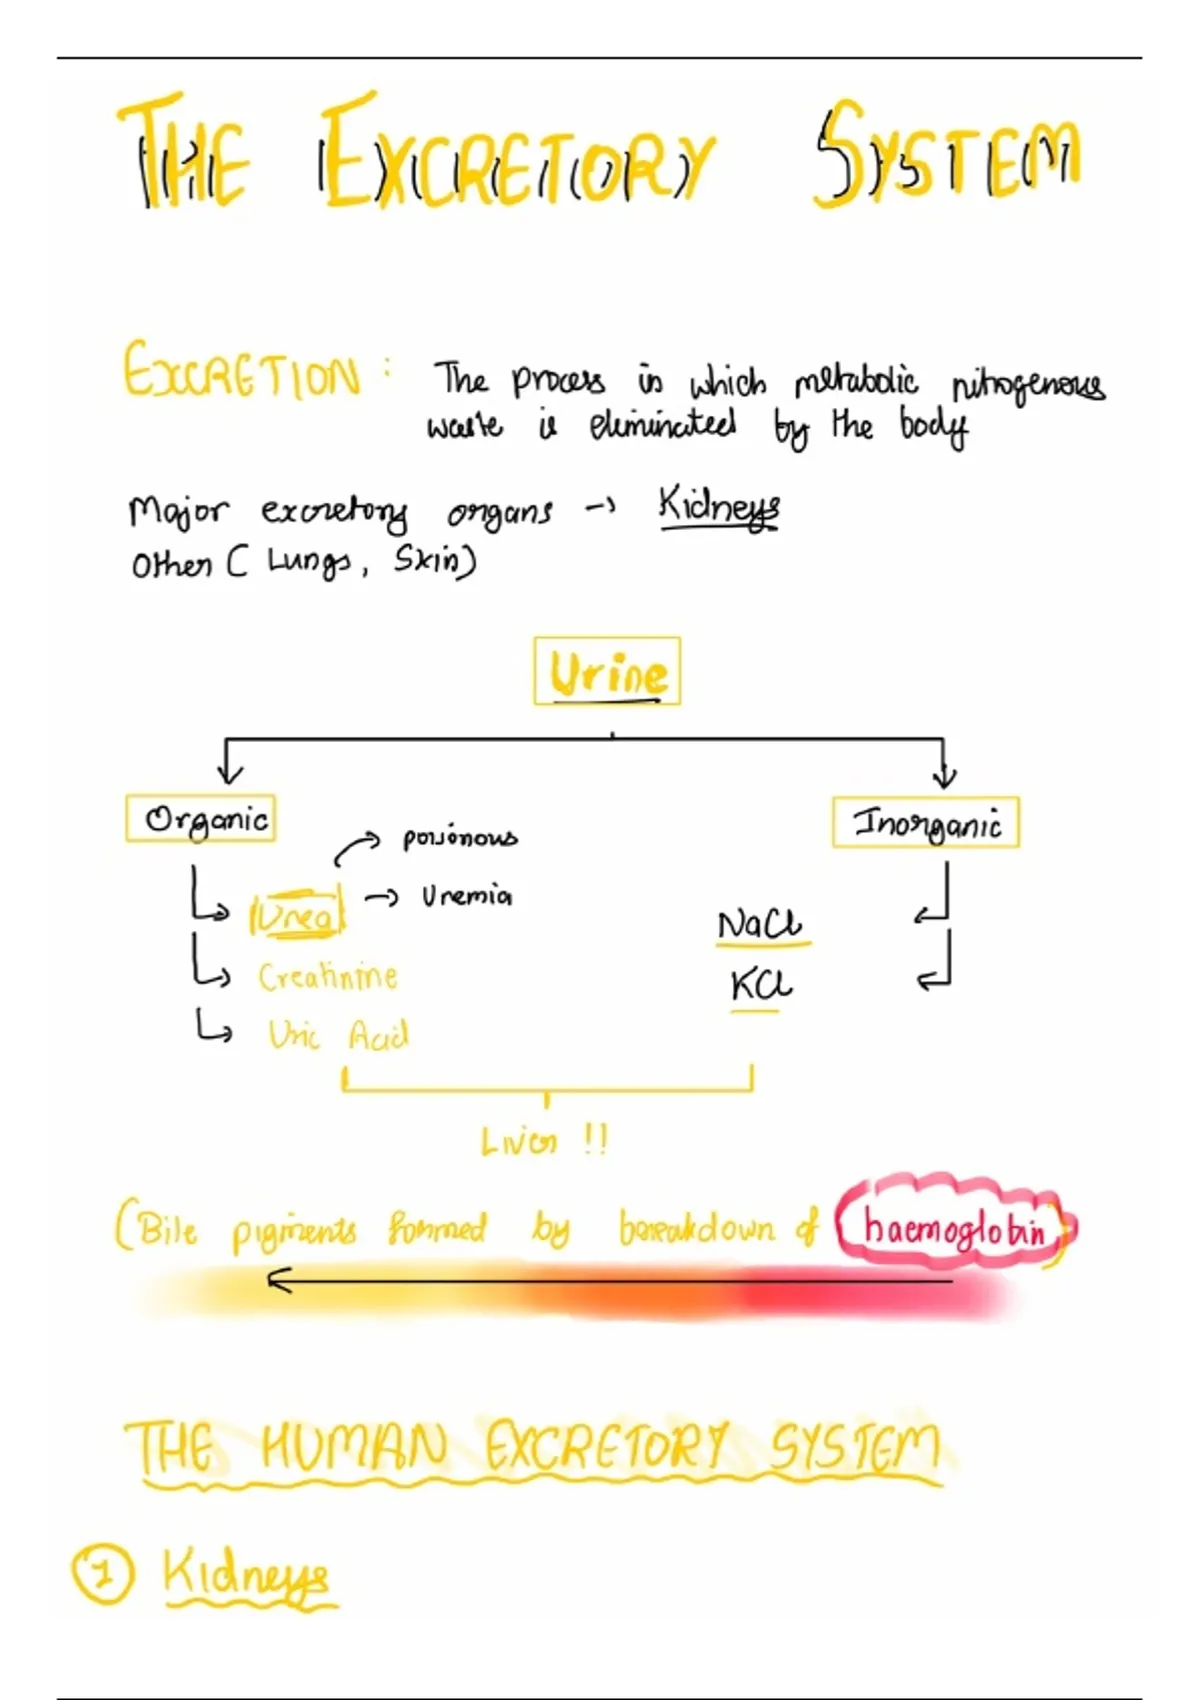 THE EXCRETORY SYSTEM
EXCRETION : The process in which metabolic nitrogenous
waste is eliminated by the body
Major excretory organs → Kidneys
Other ( Lungs, Skin)
Urine
Organic
Inorganic
poisonous
Urea → Uremia
Creatinine
Uric Acid
NaCl
KCl
Liver !!
(Bile pigments formed by breakdown of haemoglobin)
THE HUMAN EXCRETORY SYSTEM
1 Kidneys